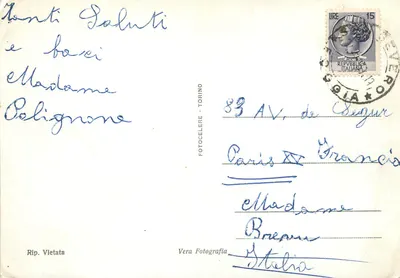 Tanti Saluti
e baci
Madame
Polignone
LIRE 15
REPVBBLICA
ITALIANA
FOGGIA
FOTOCELERE - TORINO
83 AV. de Ségur
Paris XV Francia
Madame
Italia
Rip. Vietata
Vera Fotografia